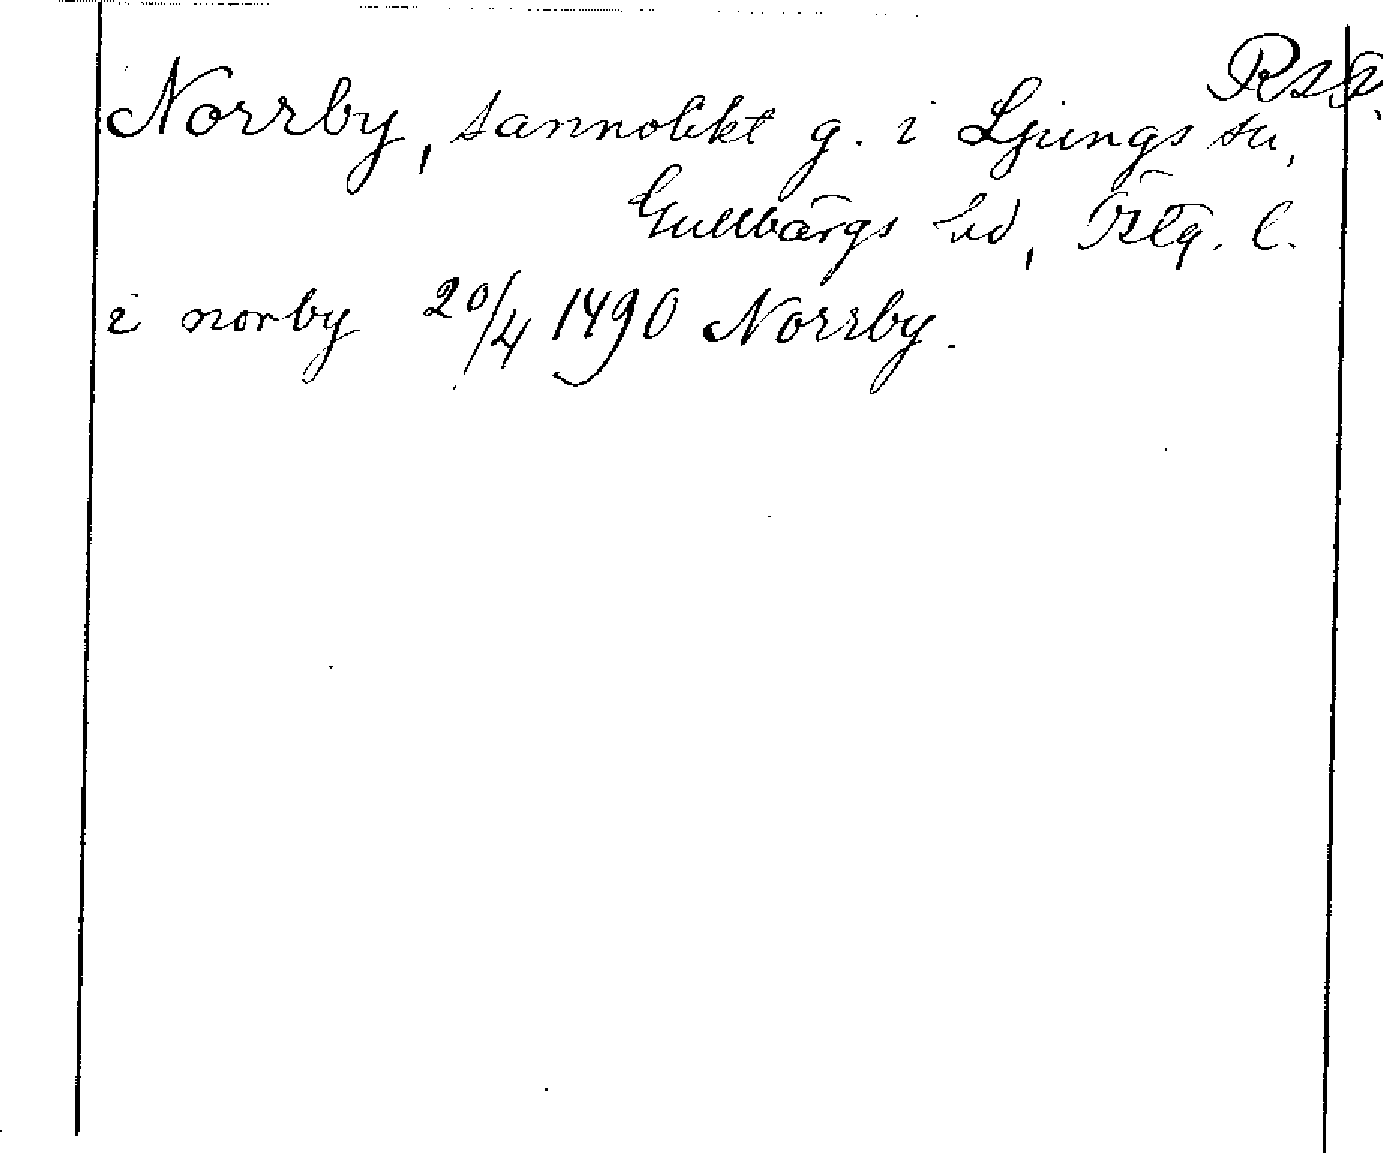 Rsp.
Norrby, sannolikt g. i Ljungs sn,
Gullbärgs hd, Ötlg. l.
i norby 20/4 1490 Norrby.